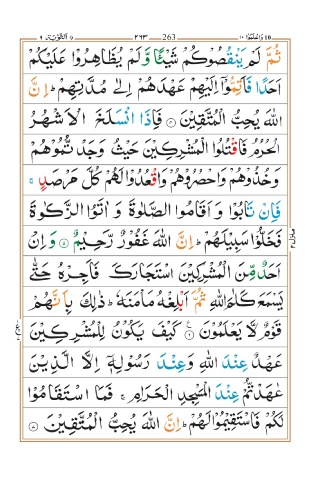 التوبة ٩ ٢٦٣ 263 واعلموا ١٠
ثُمَّ لَمْ يَنْقُصُوْكُمْ شَيْـًٔا وَّلَمْ يُظَاهِرُوْا عَلَيْكُمْ
اَحَدًا فَاَتِمُّوْۤا اِلَيْهِمْ عَهْدَهُمْ اِلٰى مُدَّتِهِمْ ؕ اِنَّ
اللّٰهَ يُحِبُّ الْمُتَّقِيْنَ ۴ فَاِذَا انْسَلَخَ الْاَشْهُرُ
الْحُرُمُ فَاقْتُلُوا الْمُشْرِكِيْنَ حَيْثُ وَجَدْتُّمُوْهُمْ
وَخُذُوْهُمْ وَاحْصُرُوْهُمْ وَاقْعُدُوْا لَهُمْ كُلَّ مَرْصَدٍ ۚ
فَاِنْ تَابُوْا وَ اَقَامُوا الصَّلٰوةَ وَ اٰتَوُا الزَّكٰوةَ
فَخَلُّوْا سَبِيْلَهُمْ ؕ اِنَّ اللّٰهَ غَفُوْرٌ رَّحِيْمٌ ۵ وَ اِنْ
اَحَدٌ مِّنَ الْمُشْرِكِيْنَ اسْتَجَارَكَ فَاَجِرْهُ حَتّٰى
يَسْمَعَ كَلٰمَ اللّٰهِ ثُمَّ اَبْلِغْهُ مَاْمَنَهٗ ؕ ذٰلِكَ بِاَنَّهُمْ
قَوْمٌ لَّا يَعْلَمُوْنَ ۶ كَيْفَ يَكُوْنُ لِلْمُشْرِكِيْنَ
عَهْدٌ عِنْدَ اللّٰهِ وَعِنْدَ رَسُوْلِهٖۤ اِلَّا الَّذِيْنَ
عٰهَدْتُّمْ عِنْدَ الْمَسْجِدِ الْحَرَامِ ۚ فَمَا اسْتَقَامُوْا
لَكُمْ فَاسْتَقِيْمُوْا لَهُمْ ؕ اِنَّ اللّٰهَ يُحِبُّ الْمُتَّقِيْنَ ۷